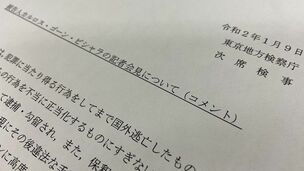 令和2年1月9日
東京地方検察庁
次席検事
被告人カルロス・ゴーン・ビシャラの記者会見について(コメント)
は犯罪に当たり得る行為をしてまで国外逃亡したもの
の行為を不当に正当化するものにすぎない
て逮捕・勾留され、また、保釈
にその後違法な手
に高度